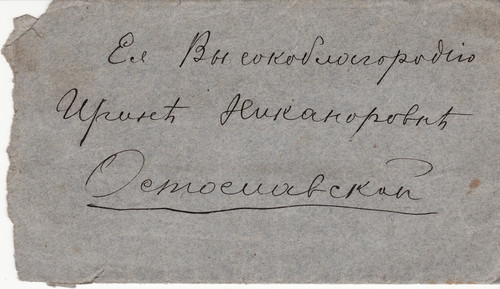 Ея Высокоблагородію
Иринѣ Никаноровнѣ
Остославской